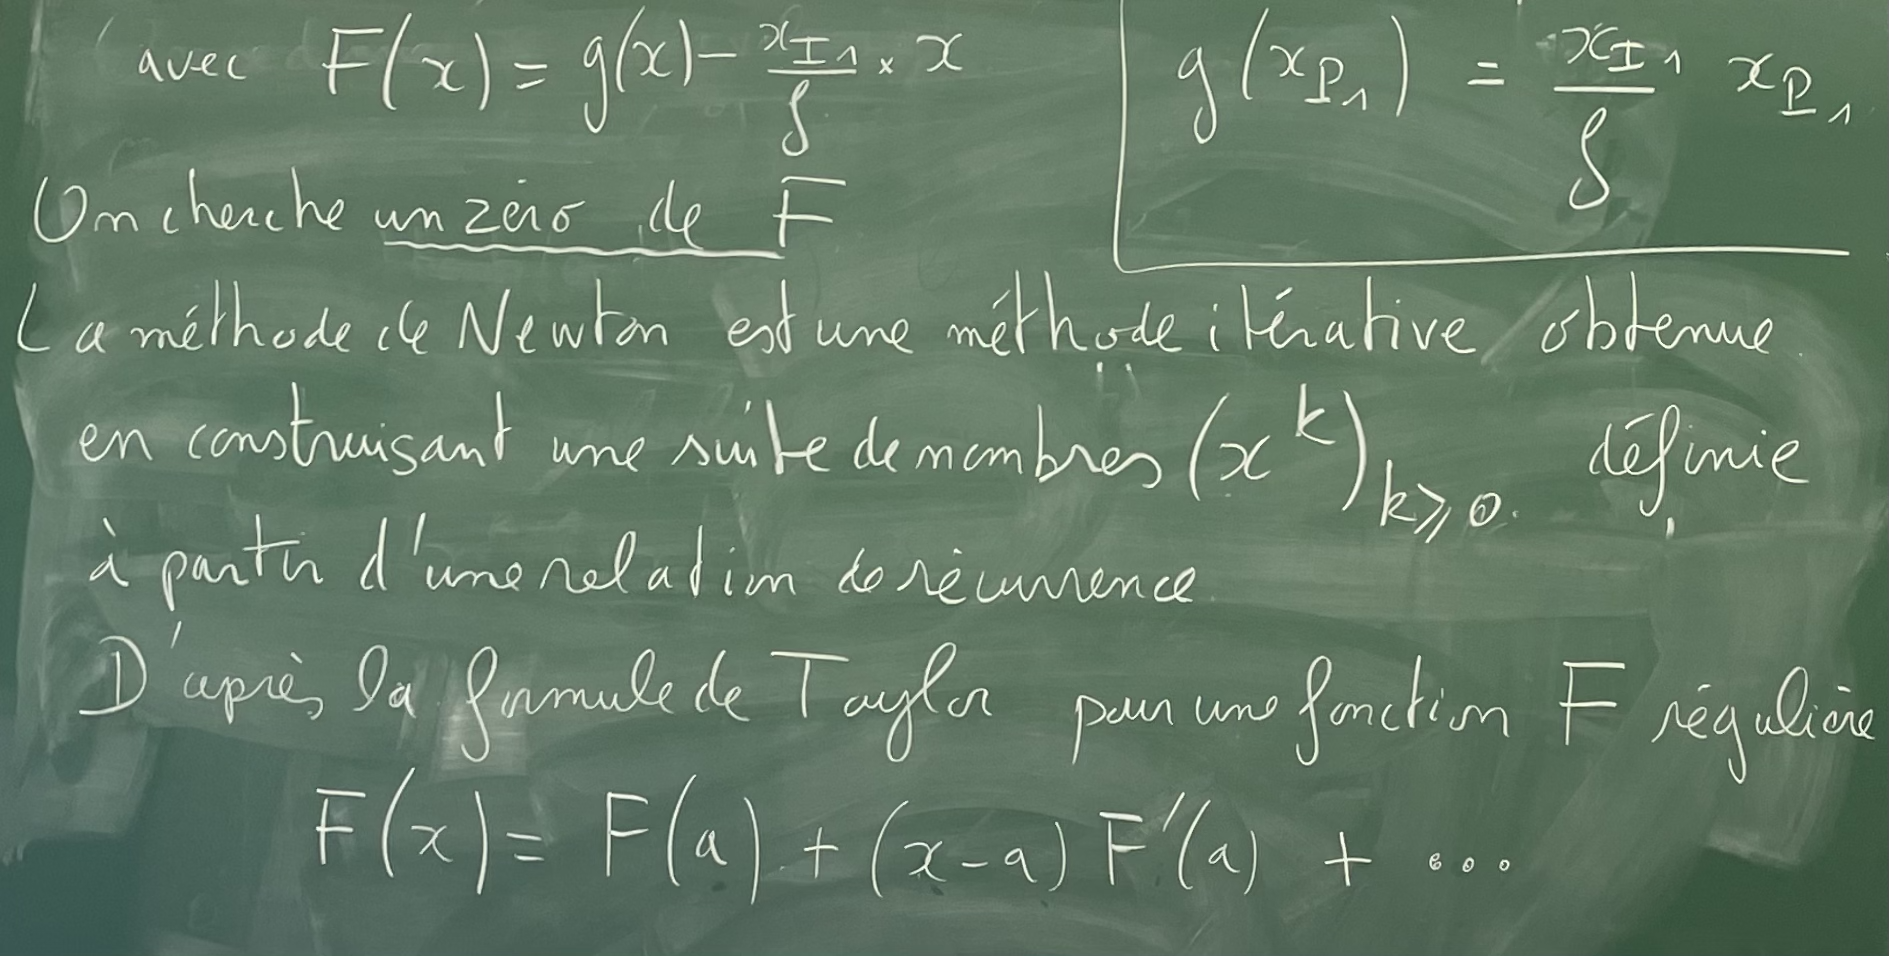 avec F(x) = g(x) - x_{I1}/ρ × x
g(x_{P1}) = x_{I1}/ρ x_{P1}
On cherche un zéro de F
La méthode de Newton est une méthode itérative obtenue
en construisant une suite de nombres (x^k)_{k⩾0} définie
à partir d'une relation de récurrence
D'après la formule de Taylor pour une fonction F régulière
F(x) = F(a) + (x-a) F'(a) + ...